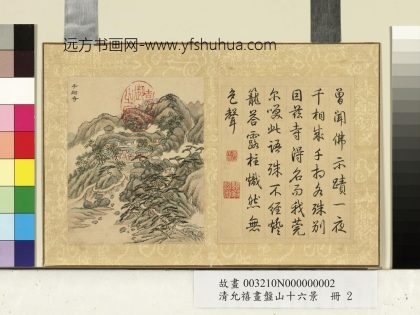 远方书画网-www.yfshuhua.com
曾聞佛示蹟一夜
千相成千相各殊別
因茲寺得名而我莞
尔笑此語殊不經燈
籠答露柱熾然無
色聲
千相寺
故畫 003210N000000002
清允禧畫盤山十六景 冊 2